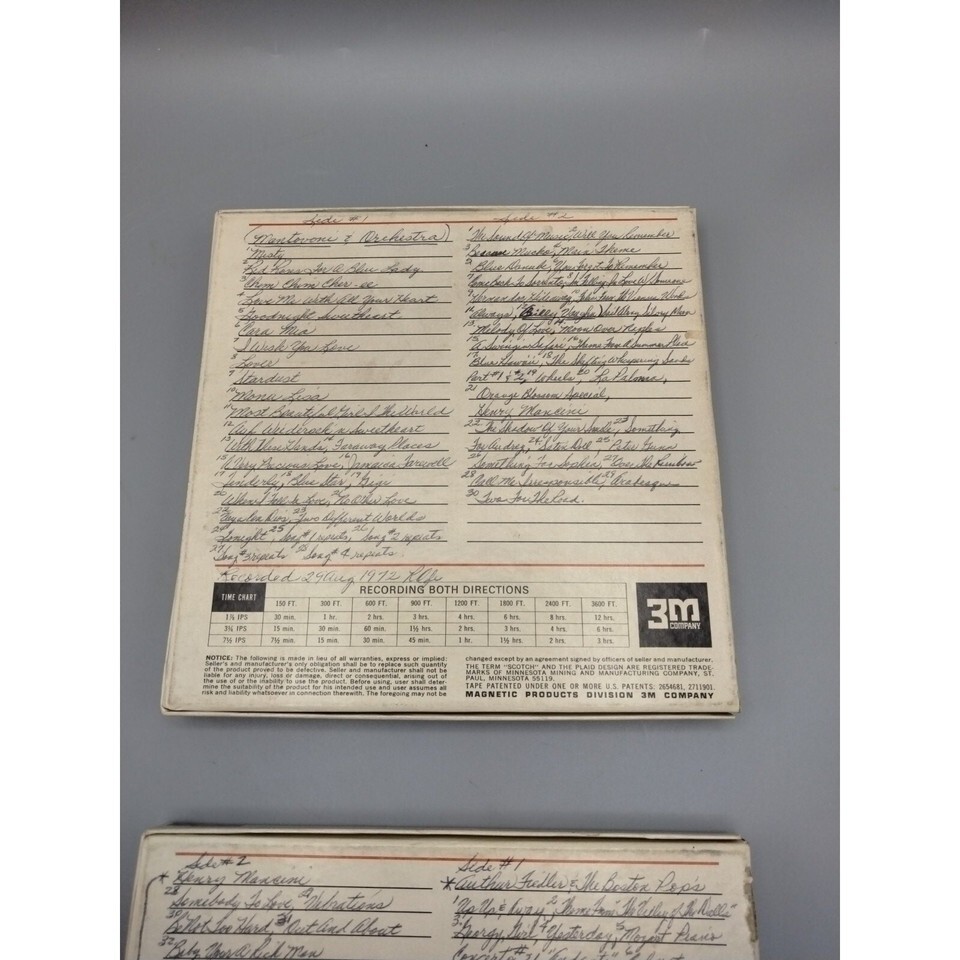 Side #1
(Mantovoni & Orchestra)
1 Misty
2 Red Roses For A Blue Lady
3 Chim Chim Cher-ee
4 Love Me With All Your Heart
5 Goodnight Sweetheart
6 Cara Mia
7 I Wish You Love
8 Lover
9 Stardust
10 Mona Lisa
11 Most Beautiful Girl In The World
12 Auf Weiderseh'n Sweetheart
13 With These Hands, 14 Faraway Places
15 A Very Precious Love, 16 Jamaica Farewell
17 Tenderly, 18 Blue Star, 19 Gigi
20 When I Fall In Love, 21 No Other Love
22 Vaya Con Dios, 23 Two Different Worlds
24 Tonight, 25 Song #1 repeats, 26 Song #2 repeats
27 Song #3 repeats 28 Song #4 repeats.
Side #2
1 The Sound Of Music, 2 Will You Remember
3 Main Theme
5 Blue Danube, 6 You Forgot To Remember
7 Come Back To Sorrento, 8 I'm Falling In Love W/Someone
9 Hernandos Hideaway, 10
11 Always, 12 (Billy Vaughn) Sail Along Silvry Moon
13 Melody Of Love, 14 Moon Over Naples
15 A Swingin Safari, 16 Theme From A Summer Place
17 Blue Hawaii, 18 The Shifting Whispering Sands
Part #1 & #2, 19 Wheels, 20 La Paloma,
21 Orange Blossom Special,
Henry Mancini
22 The Shadow Of Your Smile, 23 Something
For Audrey, 24 Satin Doll, 25 Peter Gunn
26 Something For Sophia, 27 Over The Rainbow
28 Call Me Irresponsible, 29 Arabesque
30 Two For The Road.
Recorded 29 Aug 1972
RECORDING BOTH DIRECTIONS
TIME CHART 150 FT. 300 FT. 600 FT. 900 FT. 1200 FT. 1800 FT. 2400 FT. 3600 FT.
1⅞ IPS 30 min. 1 hr. 2 hrs. 3 hrs. 4 hrs. 6 hrs. 8 hrs. 12 hrs.
3¾ IPS 15 min. 30 min. 60 min. 1½ hrs. 2 hrs. 3 hrs. 4 hrs. 6 hrs.
7½ IPS 7½ min. 15 min. 30 min. 45 min. 1 hr. 1½ hrs. 2 hrs. 3 hrs.
3M
COMPANY
NOTICE: The following is made in lieu of all warranties, express or implied:
Seller's and manufacturer's only obligation shall be to replace such quantity
of the product proved to be defective. Seller and manufacturer shall not be
liable for any injury, loss or damage, direct or consequential, arising out of
the use of or the inability to use the product. Before using, user shall deter-
mine the suitability of the product for his intended use and user assumes all
risk and liability whatsoever in connection therewith. The foregoing may not be
changed except by an agreement signed by officers of seller and manufacturer.
THE TERM "SCOTCH" AND THE PLAID DESIGN ARE REGISTERED TRADE-
MARKS OF MINNESOTA MINING AND MANUFACTURING COMPANY, ST.
PAUL, MINNESOTA 55119.
TAPE PATENTED UNDER ONE OR MORE U.S. PATENTS: 2654681, 2711901.
MAGNETIC PRODUCTS DIVISION 3M COMPANY
Side #2
* Henry Mancini
28 Somebody To Love, 29 Vibrations
30 Is Not Too Hard, 31 Out And About
32 Baby You're A Rich Man
Side #1
* Arthur Fiedler & The Boston Pop's
1 Up Up & Away, 2 Theme From "The Valley of The Dolls"
3 Georgy Girl, 4 Yesterday, 5 Mozart Piano
Concerto #21